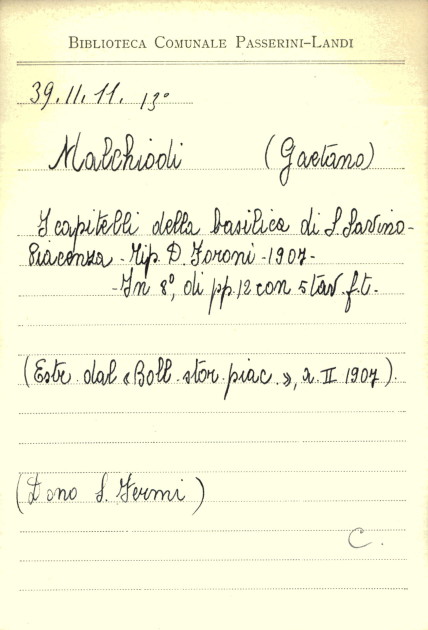 BIBLIOTECA COMUNALE PASSERINI-LANDI
39.II.11. 13°
Malchiodi (Gaetano)
I capitelli della basilica di S. Savino -
Piacenza - Tip. D. Foroni - 1907 -
- In 8°, di pp. 12 con 5 tav. f.t. -
(Estr. dal «Boll. stor. piac.», a. II 1907).
(Dono S. Fermi)
C.